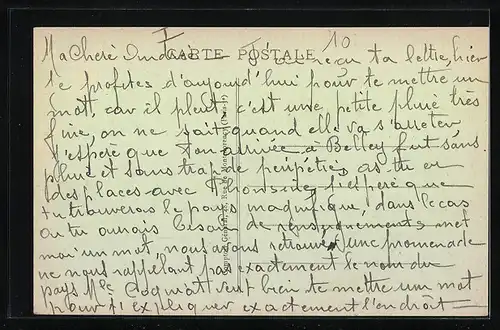 I
10
CARTE POSTALE
Ma Chère J'ai reçu ta lettre hier
je profites d'aujourd'hui pour te mettre un
mot, car il pleut, c'est une petite pluie très
fine, on ne sait quand elle va s'arreter
J'espère que ton arrivée à Belley fut sans
pluie et sans trop de péripéties as-tu eu
des places avec j'espère que
tu trouveras le pays magnifique, dans le cas
où tu aurais besoin de renseignements met
moi un mot, nous avons retrouvé une promenade
ne nous rappelant pas exactement le nom du
pays Mlle veut bien te mettre un mot
pour t'expliquer exactement l'endroit